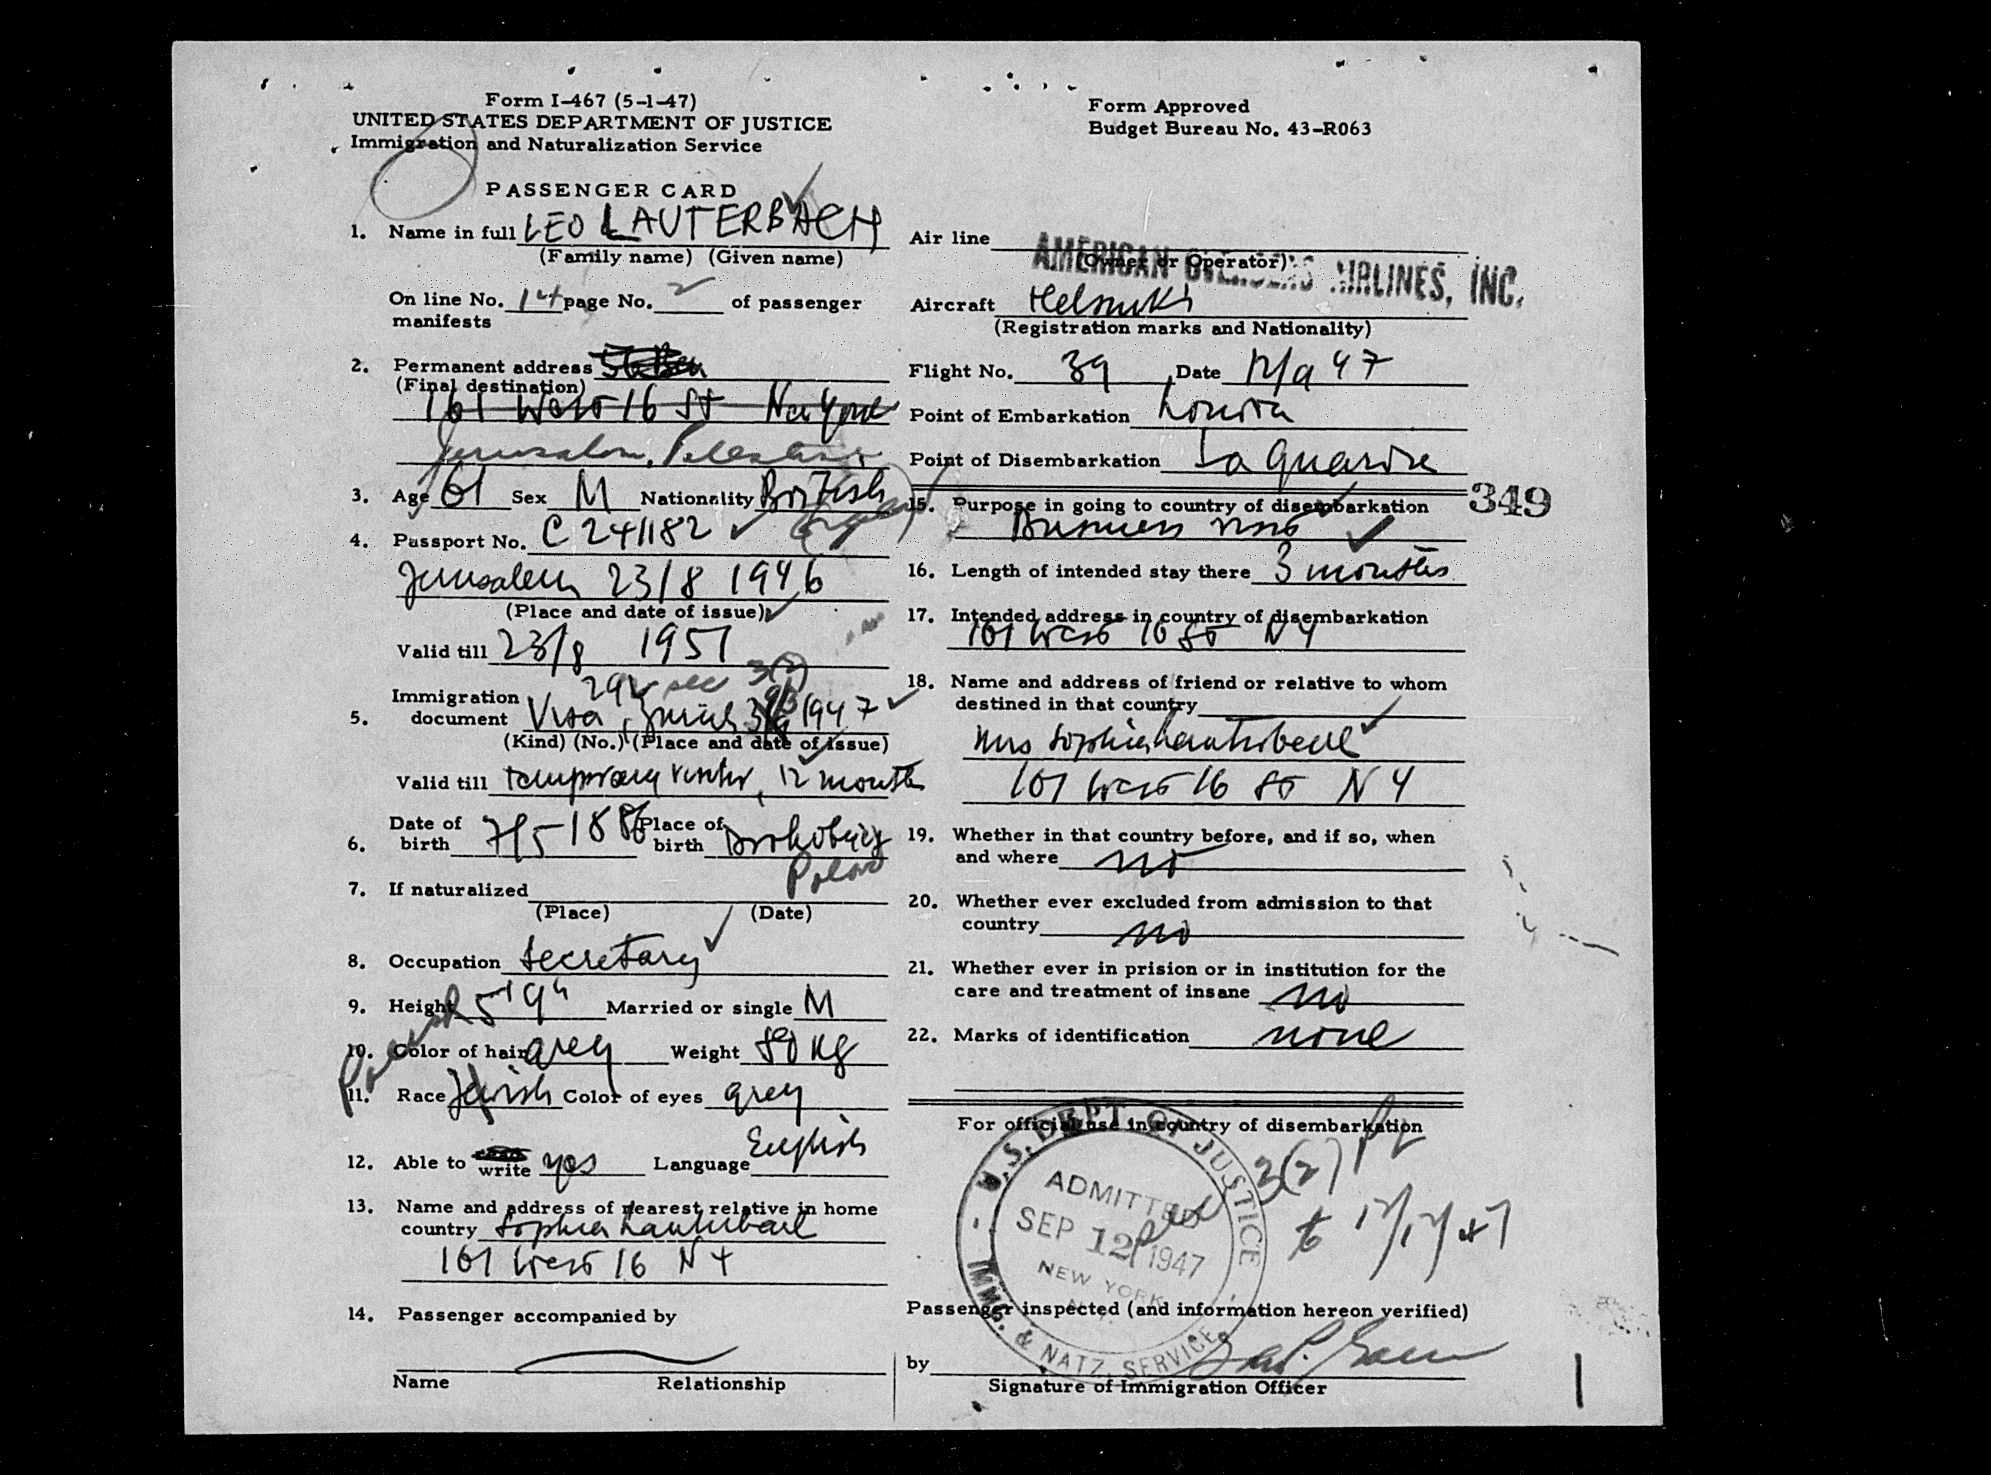 Form I-467 (5-1-47)
UNITED STATES DEPARTMENT OF JUSTICE
Immigration and Naturalization Service
Form Approved
Budget Bureau No. 43-R063
PASSENGER CARD
1. Name in full LEO LAUTERBACH
(Family name) (Given name)
On line No. 14 page No. 2 of passenger
manifests
2. Permanent address
(Final destination)
161 West 16 St New York
Jerusalem, Palestine
3. Age 61 Sex M Nationality British
4. Passport No. C 241182
Jerusalem 23/8 1946
(Place and date of issue)
Valid till 23/8 1951
sec 3(2)
5. Immigration document Visa, Zurich 1947
(Kind) (No.) (Place and date of issue)
Valid till temporary visitor, 12 months
6. Date of birth 7/5 1886 Place of birth Drohobycz
Poland
7. If naturalized
(Place) (Date)
8. Occupation Secretary
9. Height 5'9" Married or single M
10. Color of hair grey Weight 80 Kg
11. Race Jewish Color of eyes grey
12. Able to write yes Language English
13. Name and address of nearest relative in home
country Sophia Lauterbach
161 West 16 N Y
14. Passenger accompanied by
Name Relationship
Air line AMERICAN OVERSEAS AIRLINES, INC.
(Owner or Operator)
Aircraft Helsinki
(Registration marks and Nationality)
Flight No. 39 Date 12/9 47
Point of Embarkation London
Point of Disembarkation La Guardia
349
15. Purpose in going to country of disembarkation
Business visit
16. Length of intended stay there 3 months
17. Intended address in country of disembarkation
161 West 16 St N Y
18. Name and address of friend or relative to whom
destined in that country
Mrs Sophia Lauterbach
161 West 16 St N Y
19. Whether in that country before, and if so, when
and where no
20. Whether ever excluded from admission to that
country no
21. Whether ever in prision or in institution for the
care and treatment of insane no
22. Marks of identification none
For official use in country of disembarkation
U.S. DEPT. OF JUSTICE
ADMITTED
SEP 12 1947
NEW YORK
N.Y.
IMM. & NATZ. SERVICE
sec 3(2)
to 12/12/47
Passenger inspected (and information hereon verified)
by
Signature of Immigration Officer